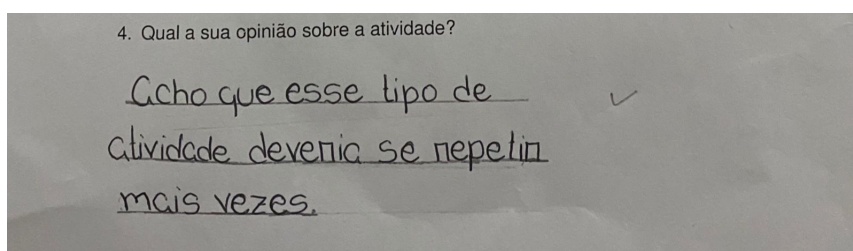 4. Qual a sua opinião sobre a atividade?
Acho que esse tipo de
atividade deveria se repetir
mais vezes.